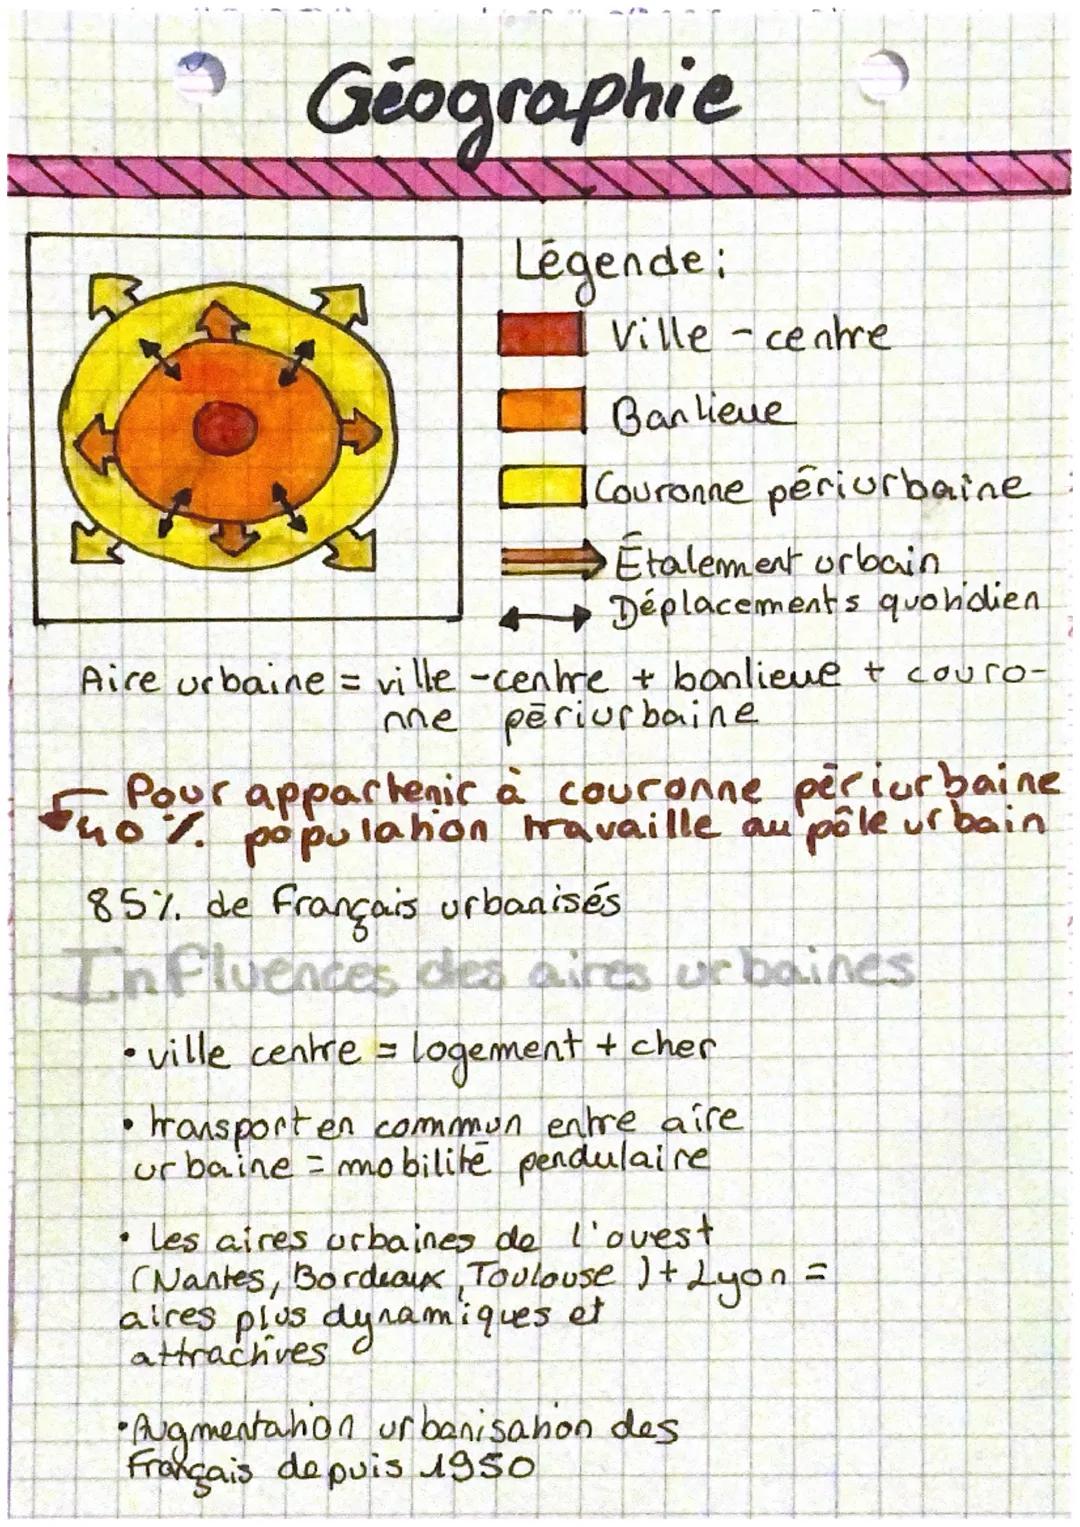 Géographie
Légende :
Ville - centre
Banlieue
Couronne périurbaine
Étalement urbain
Déplacements quotidien
Aire urbaine = ville - centre + banlieue + couro-
nne périurbaine
Pour appartenir à couronne périurbaine
40 % population travaille au pôle urbain
85 % de Français urbanisés
Influences des aires urbaines
• ville centre = logement + cher
• transport en commun entre aire
urbaine = mobilité pendulaire
• Les aires urbaines de l'ouest
(Nantes, Bordeaux, Toulouse) + Lyon =
aires plus dynamiques et
attractives
• Augmentation urbanisation des
Français depuis 1950